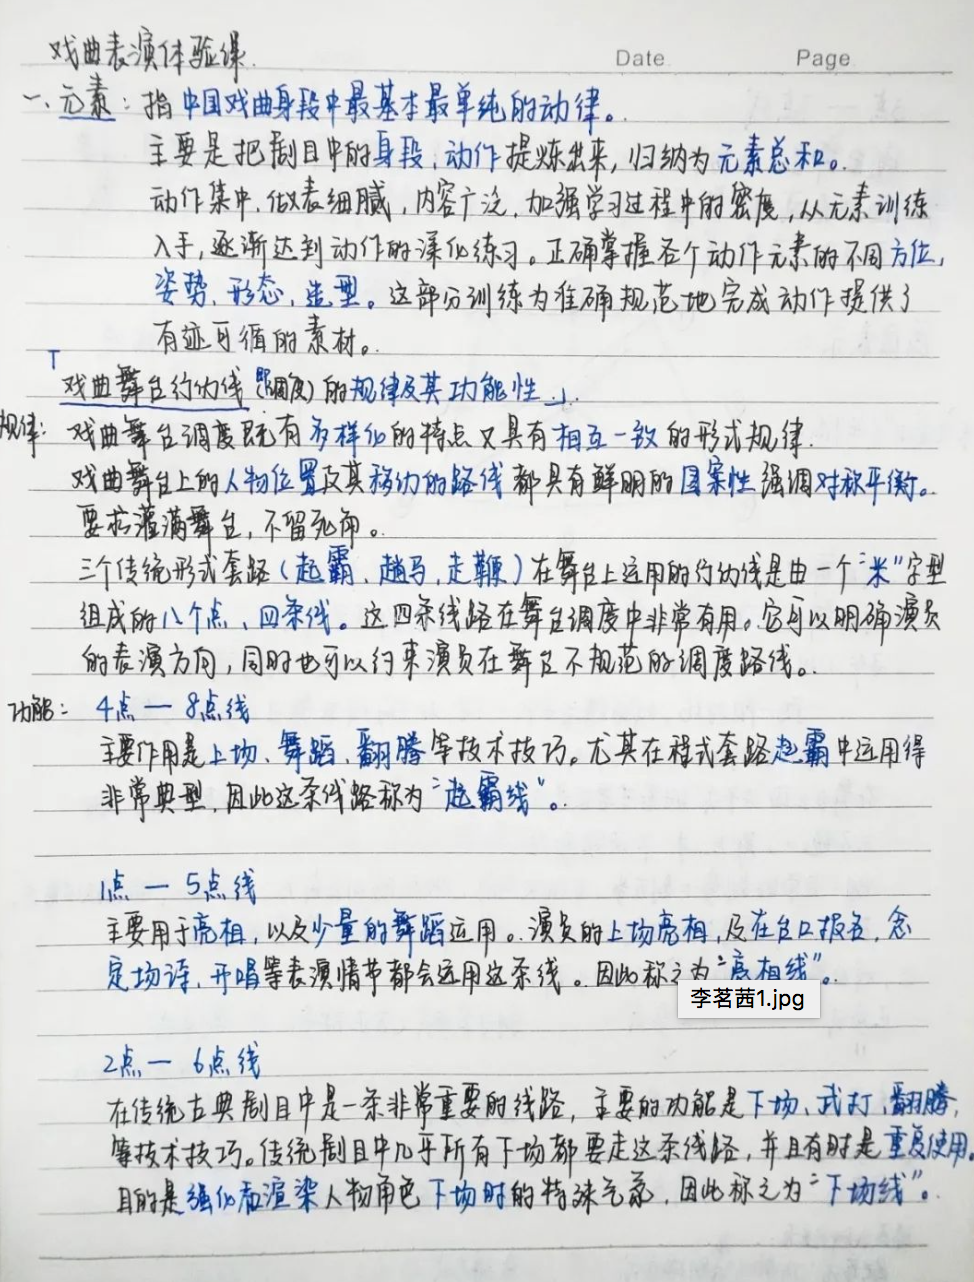 戏曲表演体验课.
Date. Page
一、元素：指中国戏曲身段中最基本最单纯的动律。
主要是把剧目中的身段、动作提炼出来，归纳为元素总和。
动作集中、做表细腻，内容广泛，加强学习过程中的密度，从元素训练
入手，逐渐达到动作的深化练习。正确掌握各个动作元素的不同方位，
姿势、形态、造型。这部分训练为准确规范地完成动作提供了
有迹可循的素材。
戏曲舞台行动线（即调度）的规律及其功能性
规律：戏曲舞台调度既有多样化的特点又具有相互一致的形式规律.
戏曲舞台上的人物位置及其移动的路线都具有鲜明的图案性强调对称平衡。
要求灌满舞台，不留死角。
三个传统形式套路（起霸、趟马、走鞭）在舞台上运用的行动线是由一个"米"字型
组成的八个点、四条线。这四条线路在舞台调度中非常有用。它可以明确演员
的表演方向，同时也可以约束演员在舞台不规范的调度路线。
功能：4点一8点线
主要作用是上场、舞蹈、翻腾等技术技巧。尤其在程式套路起霸中运用得
非常典型，因此这条线路称为"起霸线"。
1点一5点线
主要用于亮相，以及少量的舞蹈运用。演员的上场亮相，及在台口报名，念
定场诗、开唱等表演情节都会运用这条线。因此称之为"亮相线"。
李茗茜1.jpg
2点一6点线
在传统古典剧目中是一条非常重要的线路，主要的功能是下场、武打、翻腾，
等技术技巧。传统剧目中几乎所有下场都要走这条线路，并且有时是重复使用。
目的是强化和渲染人物角色下场时的特殊气氛，因此称之为"下场线"。